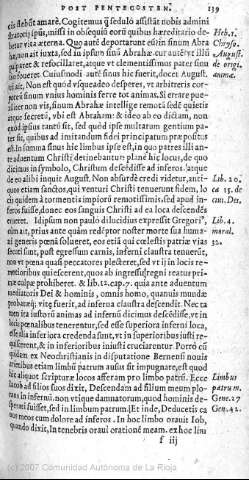 POST PENTECOSTEN. 139
eis flebit amarè. Cogitemus
tratorij ipius, missi in obsequiũ eorũ qui hæreditatẽ de-
betar vitæ æternæ. Quo autẽ deportarunt eũ? in sinum Abra
hæ, non ait iuxta, sed in ipsum sinũ Abrahæ
ret & refocillaret, atque vt clementissimus pater sinu
suo foueret. Cuiusmodi autẽ sinus hic fuerit, docet August.
vt ait, Non est quòd vsquequaq̃
porum sinum vnius hominis ferre tot animas. Si errare
non vis, sinum Abrahæ intellige remotã sedẽ quietis
atque secretã, vbi est Abraham: & ideo ab eo dictam, non
quòd ipsius tantũ sit, sed quòd ipse multarum gentium pa-
ter sit, quibus ad imitandum fidei principatum præpositus
est. In summa sinus hic limbus ipse est, in quo patres illi an-
te aduentum Christi detinebantur
dicimus in symbolo, Christum descẽdisse ad inferos. Idque
de eo alibi inquit August. Non absurdè credi videtur, anti-
quos etiam sanctos, qui venturi Christi tenuerunt fidem, lo
cis quidem à tormentis impiorũ remotissimis, sed apud in-
feros fuisse, donec eos sanguis Christi ad ea loca descendẽs
erueret. Idipsum non paulò dilucidius expressit Gregori⁹,
etiam ait, prius ante quàm redẽptor noster morte sua huma-
ni generis pœnã solueret, eos etiã qui cœlestis patriæ vias
secuti sunt, post egressum carnis, inferni claustra tenuerũt,
non vt pœna quasi peccatores plecteret, sed vt ij in locis re-
motioribus quiescerent, quos ab ingressu regni reatus pri-
mæ culpæ prohiberet. & lib. 12. cap. 7. quia ante aduentum
mediatoris Dei & hominis, omnis homo, quamuis mundæ
probatæq́; vitæ fuerit, ad inferni claustra descendit. Nec ta
men ita iustorũ animas ad infernũ dicimus descẽdisse, vt in
locis pœnalibus tenerentur, sed esse superiora inferni loca,
esse alia inferiora credenda sunt, vt in superioribus iusti re-
quiescerent, & in inferioribus iniusti cruciarentur
quidem ex Neochristianis in disputatione Bernensi nouis
omnibus etiam limbũ patrum ausus sit impugnare, est quod
hîc aliquot scripturæ locos afferam pro limbo patrũ. Ecce
Iacob ad filios suos dixit, Descendam ad filium meum plo-
rans in infernũ. non vtique damnatorum, quod hominis de-
speratì fuisset, sed in limbum patrum. Et inde, Deducetis ca
nos meos dolore ad inferos. In hoc limbo orauit Iob,
quando dixit, In tenebris oraui orationẽ meam. ex hoc lim
f iij
Heb. 1.
Chryso.
August.
de origi.
animæ.
Lib. 20.
ca. 15. de
ciui. Dei.
Lib. 4.
moral.
32.
Limbus
patrum.
Gene. 37
Gen. 42.
(c) 2007 Comunidad Autónoma de La Rioja